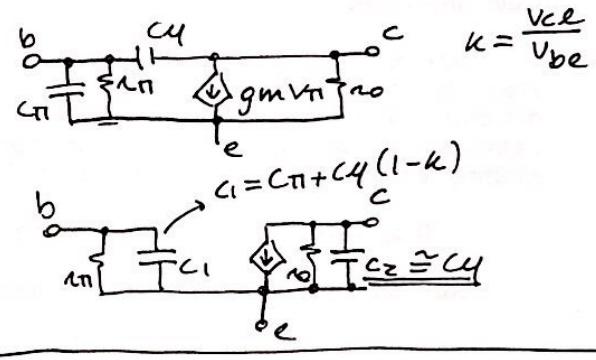 b
Cμ
c
k = vce / vbe
Cπ
rπ
gm vπ
ro
e
C1 = Cπ + Cμ (1 - k)
b
c
rπ
C1
ro
C2 ≅ Cμ
e